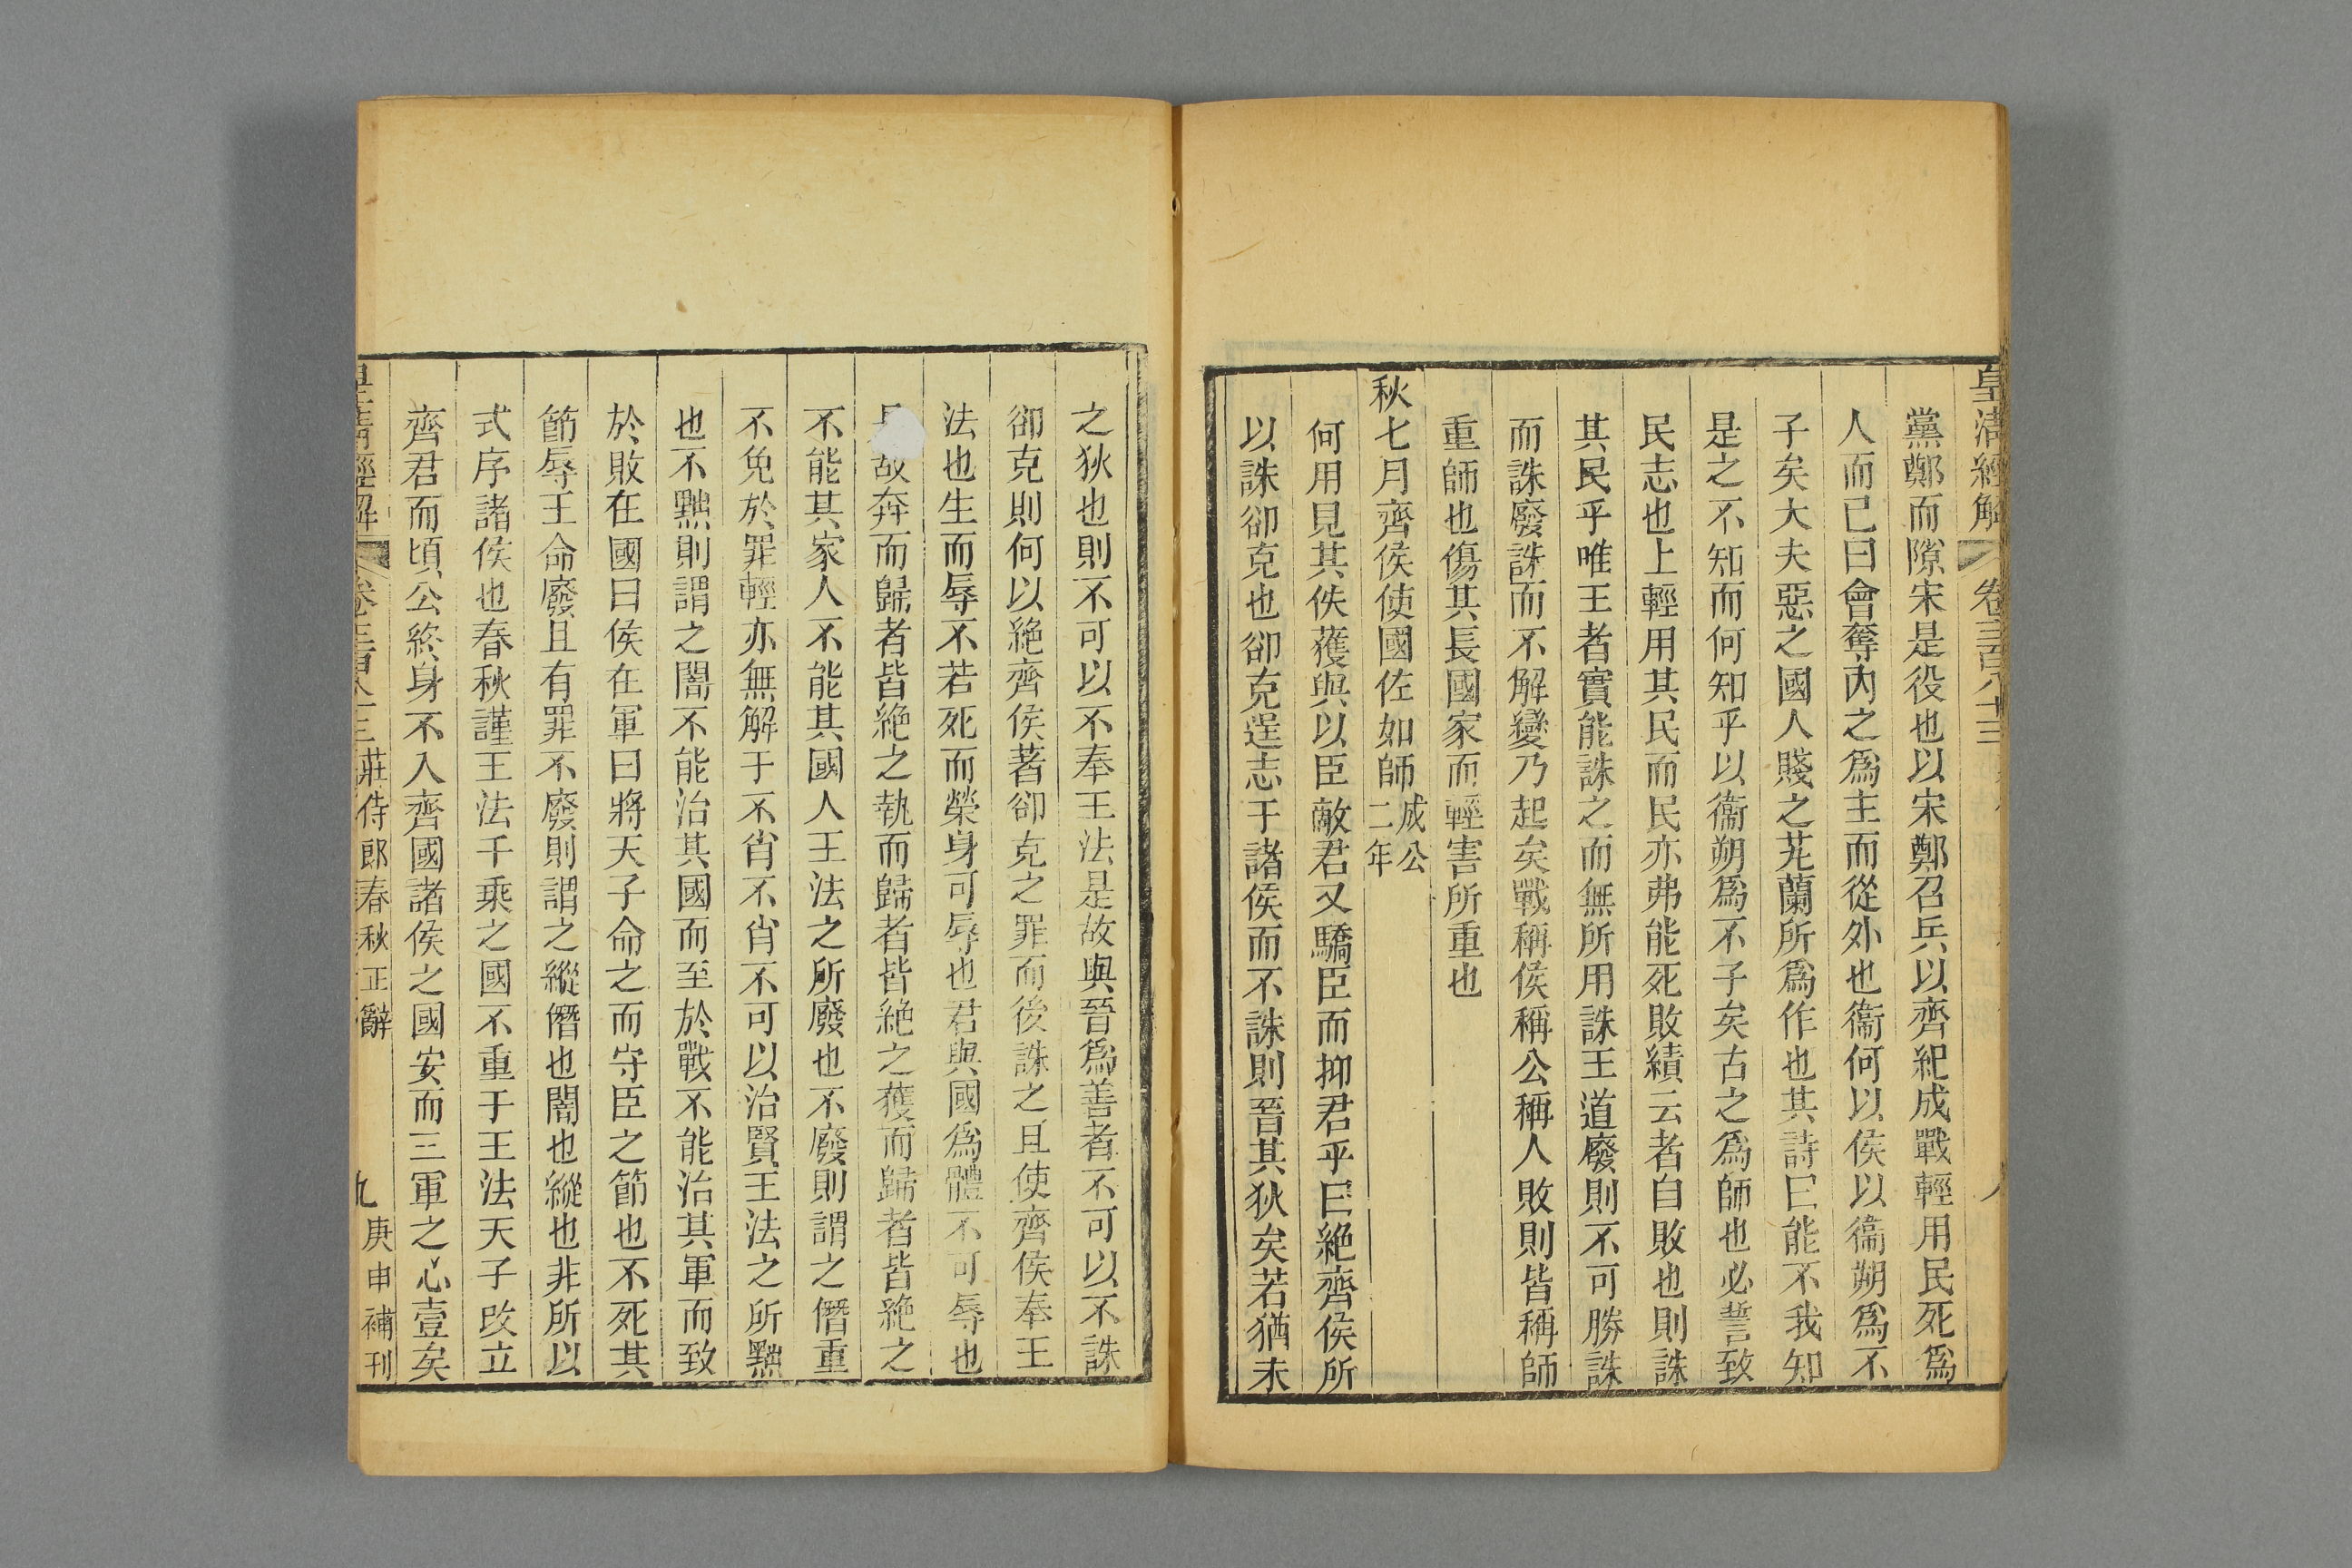 皇清經解 卷三百八十三 八
黨鄭而隙宋是役也以宋鄭召兵以齊紀成戰輕用民死爲
人而已曰會奪內之爲主而從外也衞何以侯以衞朔爲不
子矣大夫惡之國人賤之芄蘭所爲作也其詩曰能不我知
是之不知而何知乎以衞朔爲不子矣古之爲師也必誓致
民志也上輕用其民而民亦弗能死敗績云者自敗也則誅
其民乎唯王者實能誅之而無所用誅王道廢則不可勝誅
而誅廢誅而不解變乃起矣戰稱侯稱公稱人敗則皆稱師
重師也傷其長國家而輕害所重也
秋七月齊侯使國佐如師成公二年
何用見其佚獲與以臣敵君又驕臣而抑君乎曰絕齊侯所
以誅卻克也卻克逞志于諸侯而不誅則晉其狄矣若猶未
之狄也則不可以不奉王法是故與晉爲善者不可以不誅
卻克則何以絕齊侯著卻克之罪而後誅之且使齊侯奉王
法也生而辱不若死而榮身可辱也君與國爲體不可辱也
故奔而歸者皆絕之執而歸者皆絕之獲而歸者皆絕之
不能其家人不能其國人王法之所廢也不廢則謂之僭重
不免於罪輕亦無解于不肖不肖不可以治賢王法之所黜
也不黜則謂之闇不能治其國而至於戰不能治其軍而致
於敗在國曰侯在軍曰將天子命之而守臣之節也不死其
節辱王命廢且有罪不廢則謂之縱僭也闇也縱也非所以
式序諸侯也春秋謹王法千乘之國不重于王法天子改立
齊君而頃公終身不入齊國諸侯之國安而三軍之心壹矣
皇清經解 卷三百八十三 莊侍郎春秋正辭 九 庚申補刊